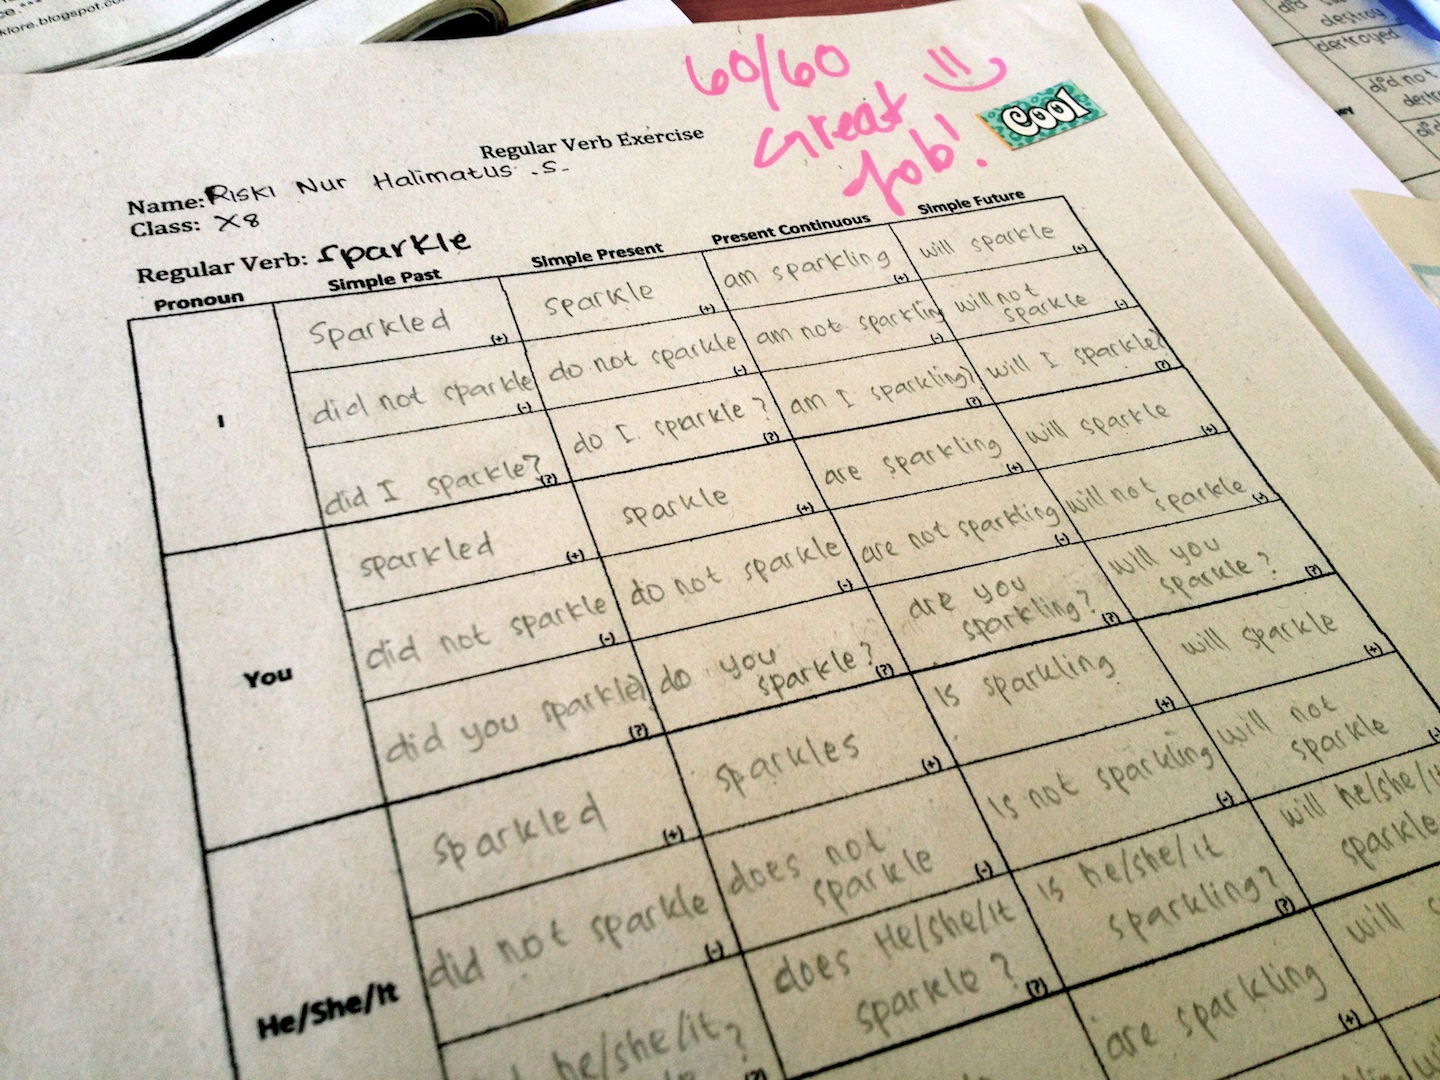 klore.blogspot.com
60/60
Great
Job!
Cool
Regular Verb Exercise
Name: Riski Nur Halimatus .S.
Class: X8
Regular Verb: Sparkle
Pronoun Simple Past Simple Present Present Continuous Simple Future
I
Sparkled (+) sparkle (+) am sparkling (+) will sparkle (+)
did not sparkle (-) do not sparkle (-) am not sparkling (-) will not sparkle (-)
did I sparkle? (?) do I sparkle? (?) am I sparkling? (?) will I sparkle? (?)
You
sparkled (+) sparkle (+) are sparkling (+) will sparkle (+)
did not sparkle (-) do not sparkle (-) are not sparkling (-) will not sparkle (-)
did you sparkle? (?) do you sparkle? (?) are you sparkling? (?) will you sparkle? (?)
He/She/It
sparkled (+) sparkles (+) Is sparkling (+) will sparkle (+)
did not sparkle (-) does not sparkle (-) Is not sparkling (-) will not sparkle (-)
he/she/it? (?) does He/She/It sparkle? (?) Is he/she/it sparkling? (?) will he/she/it sparkle
are sparkling (+) will
destroy
destroyed
did not